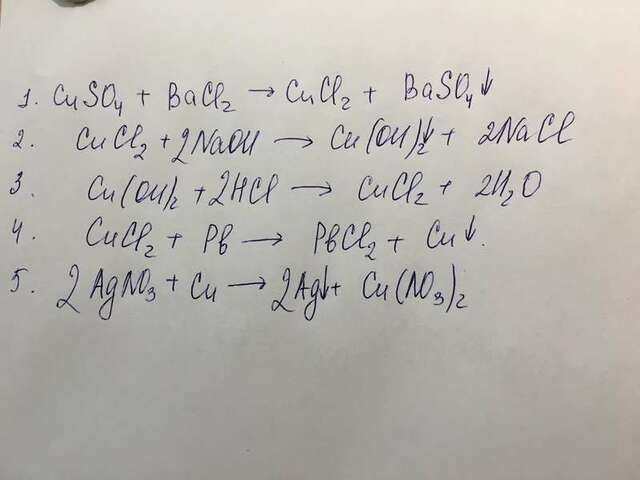 1. CuSO₄ + BaCl₂ → CuCl₂ + BaSO₄↓
2. CuCl₂ + 2NaOH → Cu(OH)₂↓ + 2NaCl
3. Cu(OH)₂ + 2HCl → CuCl₂ + 2H₂O
4. CuCl₂ + Pb → PbCl₂ + Cu↓.
5. 2AgNO₃ + Cu → 2Ag↓ + Cu(NO₃)₂